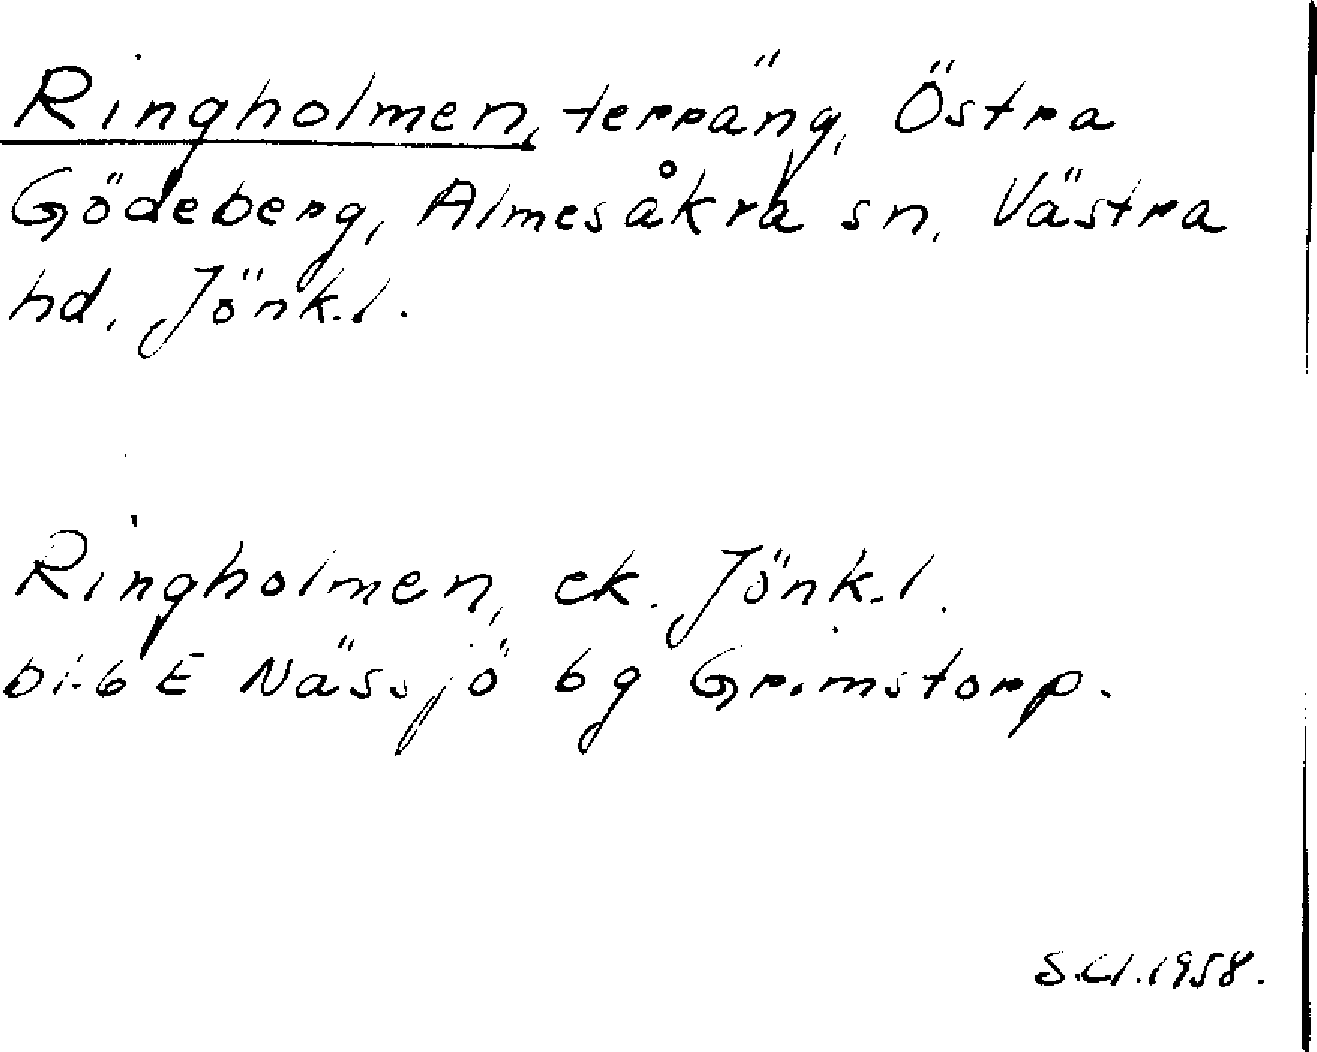 Ringholmen, terräng, Östra
Gödeberg, Almesåkra sn, Västra
hd, Jönk.l.
Ringholmen, ek. Jönk.l.
bl. 6 E Nässjö bg Grimstorp.
1958.